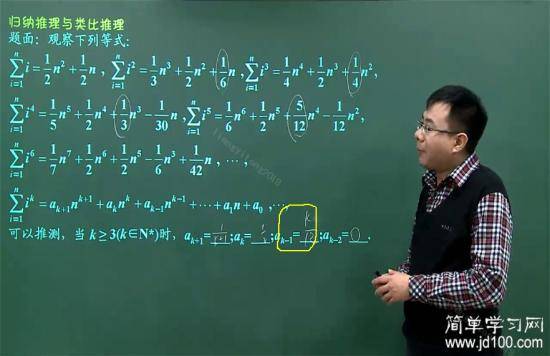 归纳推理与类比推理
题面：观察下列等式：
∑_{i=1}^{n} i = 1/2 n² + 1/2 n , ∑_{i=1}^{n} i² = 1/3 n³ + 1/2 n² + 1/6 n , ∑_{i=1}^{n} i³ = 1/4 n⁴ + 1/2 n³ + 1/4 n²,
∑_{i=1}^{n} i⁴ = 1/5 n⁵ + 1/2 n⁴ + 1/3 n³ − 1/30 n, ∑_{i=1}^{n} i⁵ = 1/6 n⁶ + 1/2 n⁵ + 5/12 n⁴ − 1/12 n²,
∑_{i=1}^{n} i⁶ = 1/7 n⁷ + 1/2 n⁶ + 1/2 n⁵ − 1/6 n³ + 1/42 n , ⋯,
∑_{i=1}^{n} i^k = a_{k+1}n^{k+1} + a_k n^k + a_{k−1}n^{k−1} + ⋯ + a_1 n + a_0 , ⋯
可以推测，当 k≥3(k∈N*)时，a_{k+1}= 1/(k+1) ;a_k= 1/2 ;a_{k−1}= k/12 ;a_{k−2}= 0 .
简单学习网
www.jd100.com